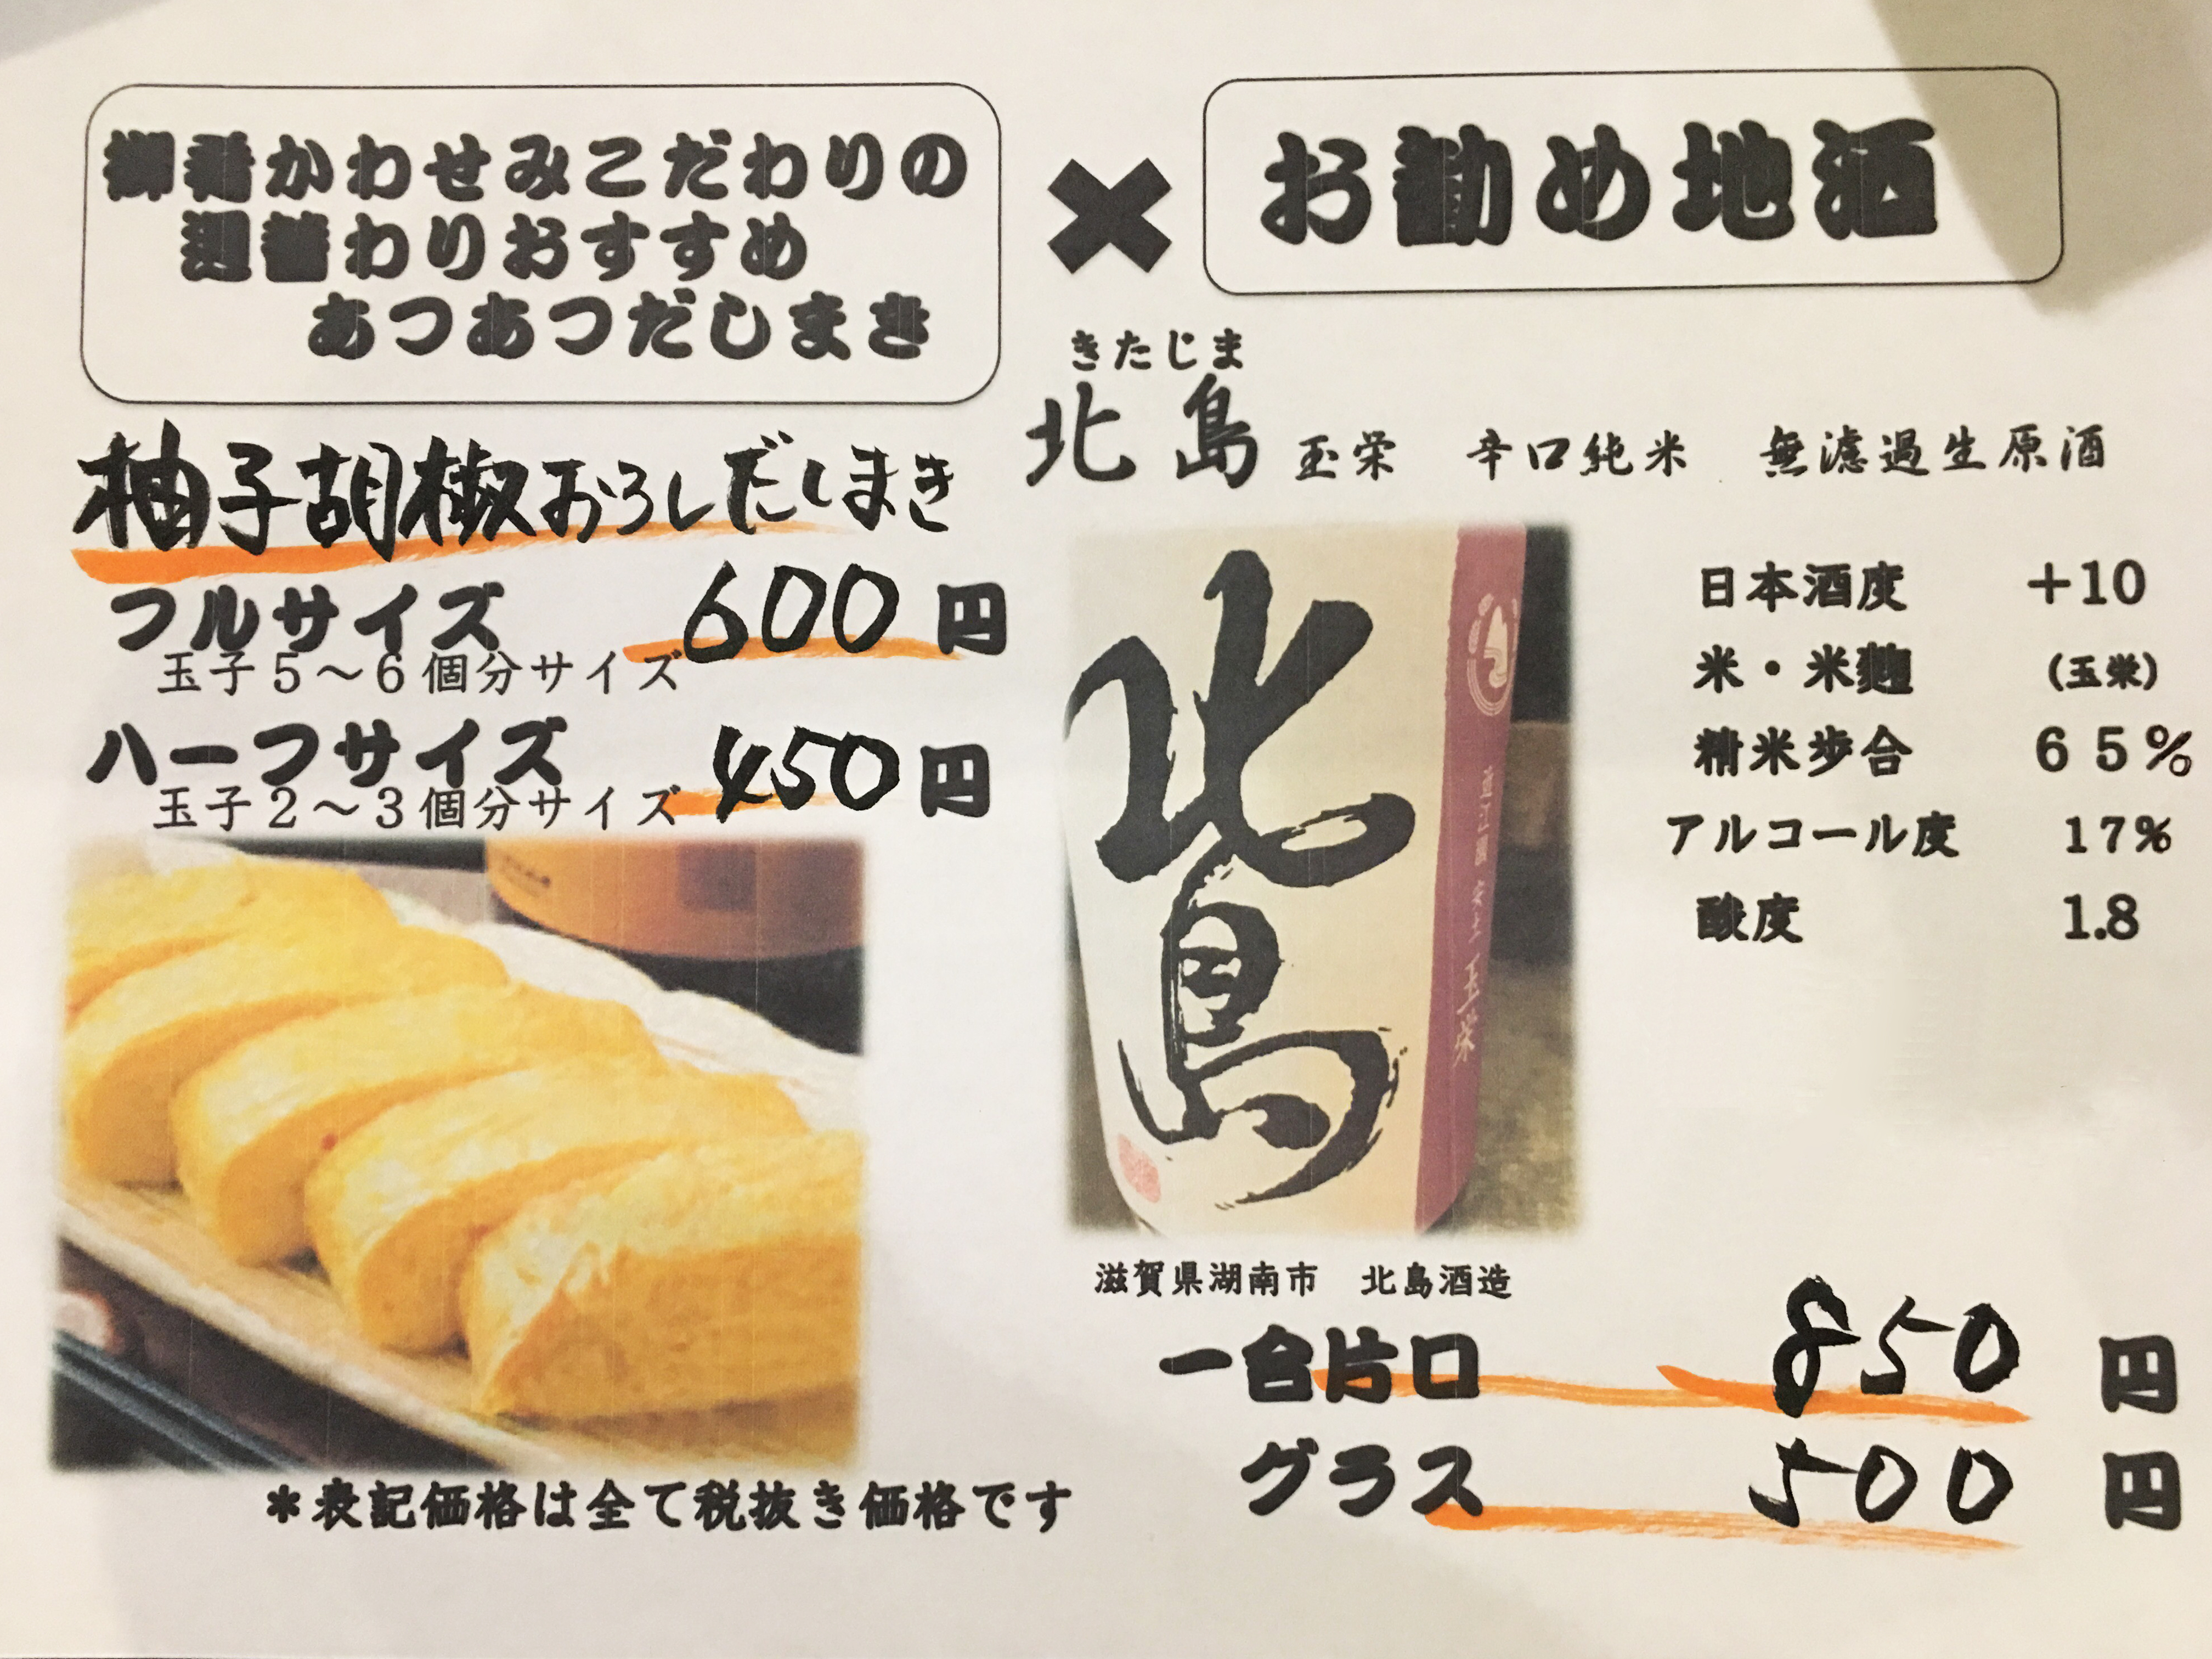 御肴かわせみこだわりの
週替わりおすすめ
あつあつだしまき
柚子胡椒おろしだしまき
フルサイズ 600円
玉子5～6個分サイズ
ハーフサイズ 450円
玉子2～3個分サイズ
＊表記価格は全て税抜き価格です
×
お勧め地酒
きたじま
北島 玉栄 辛口純米 無濾過生原酒
北島
玉栄
日本酒度 +10
米・米麹 (玉栄)
精米歩合 65%
アルコール度 17%
酸度 1.8
滋賀県湖南市 北島酒造
一合片口 850円
グラス 500円